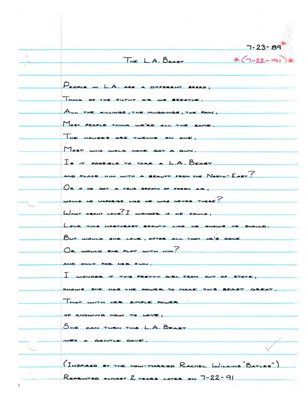 7-23-89*
*(7-22-91)*
The L.A. Beast
People in L.A. are a different breed,
Think of the filthy air we breathe,
All the killings, the muggings, the pain,
Most people think we're all the same.
The houses are twelve on one,
Most who walk have got a gun.
Is it possible to take a L.A. Beast
and place him with a beauty from the North-East?
Or if he got a true breath of fresh air,
would he vaporise like he was never there?
What about love? I wonder if he could,
Love this northeast beauty like he knows he should.
But would she love, after all that he's done
Or would she play with him?
and only for her fun.
I wonder if this pretty girl from out of state,
knows she has the power to make this beast great.
That with her simple power
of knowing how to love,
She can turn this L.A. Beast
into a gentle dove.
(Inspired by the now-married Rachel Wilkins "Bayles")
Reprinted almost 2 years later on 7-22-91